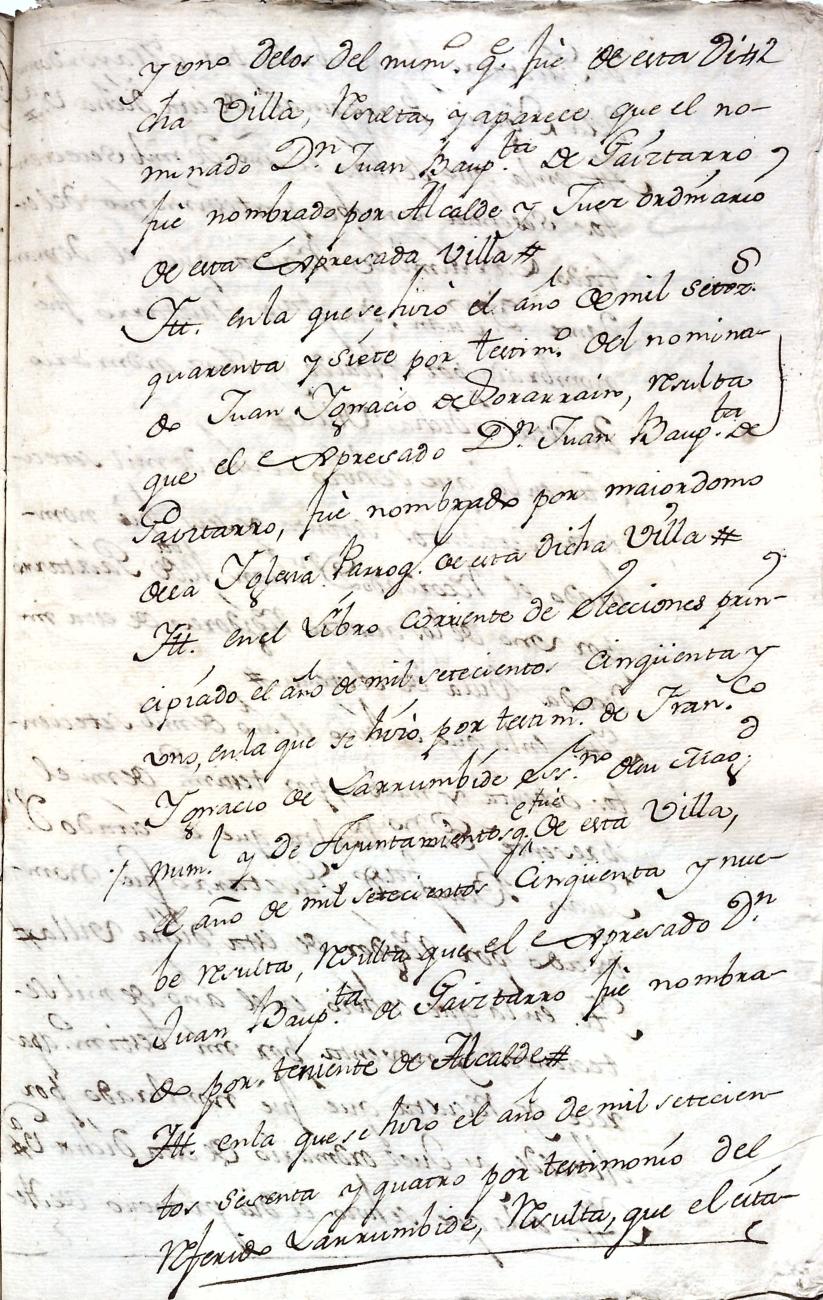 y uno delos del num.º q.e fue de esta di 42
cha Villa, Resulta, y aparece que el no-
minado D.n Juan Baup.ta de Gaiztarro
fue nombrado por Alcalde y Juez ordinario
de esta expresada Villa #
Itt. enla que se hizo el año de mil setez.s
quarenta y siete por testim.º del nomina-
do Juan Ygnacio de Zorarrain, resulta
que el expresado D.n Juan Baup.ta de
Gaiztarro, fue nombrado por maiordomo
dela Yglesia Parroq.l de esta dicha Villa #
Itt. en el Libro corriente de elecciones prin-
cipiado el año de mil setecientos cinqüenta y
uno, enla que se hizo por testim.º de Fran.co
Ygnacio de Larrumbide ess.no de su Mag.d
num.l y de Ayuntamientos q.e fue de esta Villa,
el año de mil setecientos cinqüenta y nue-
be resulta, resulta que el expresado D.n
Juan Baup.ta de Gaiztarro fue nombra-
do por teniente de Alcalde #
Itt. enla que se hizo el año de mil setecien-
tos sesenta y quatro por testimonio del
referido Larrumbide, Resulta, que el cita-